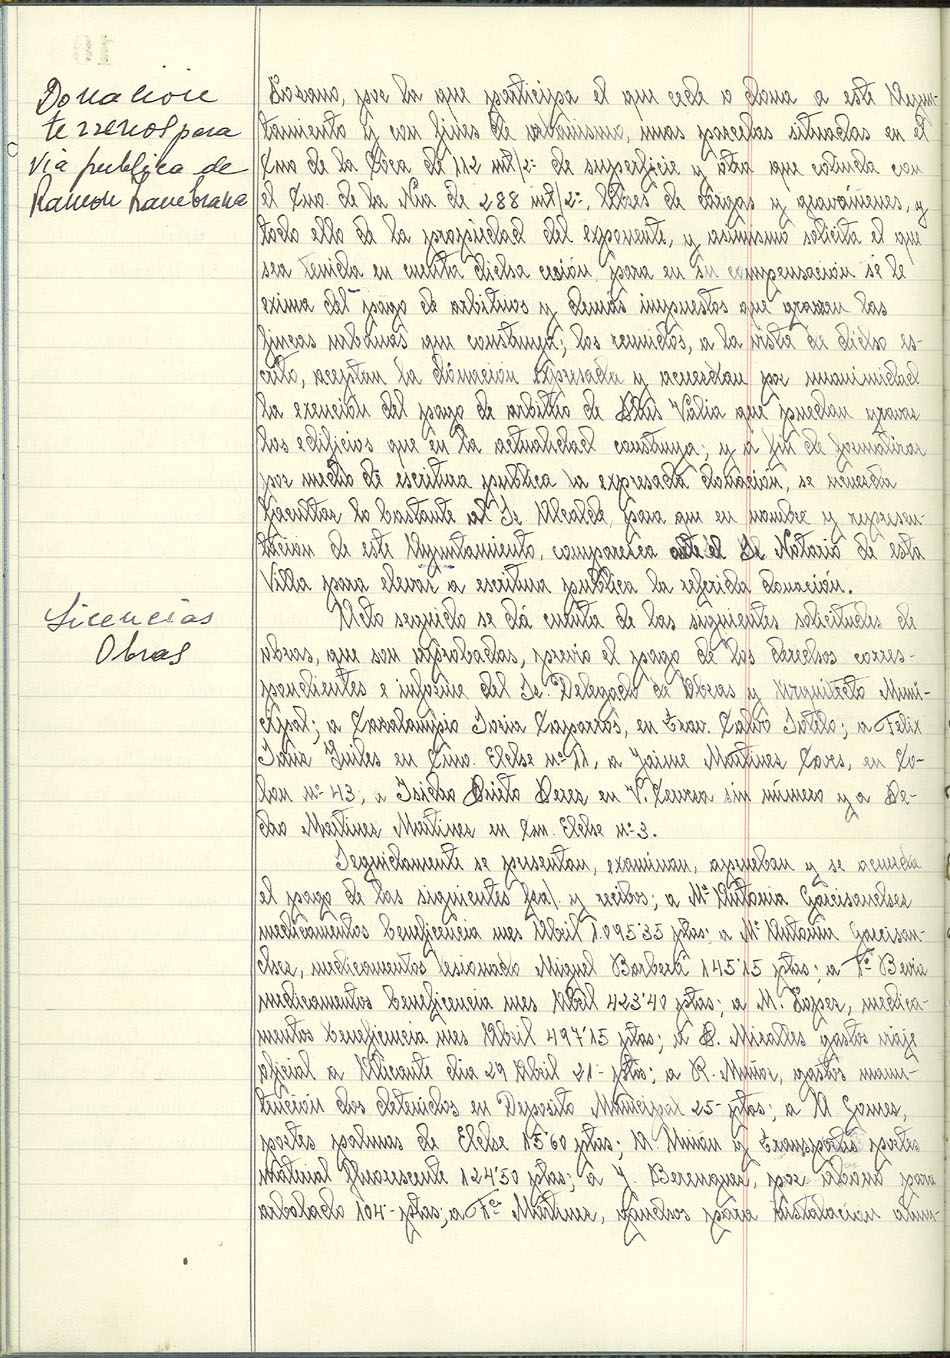 Donacion
terrenos para
via publica de
Ramon
Lozano, por la que participa el que cede o dona a este Ayun-
tamiento y con fines de urbanismo, unas parcelas situadas en el
Cno de la de 112 mt/2: de superficie y otra que colinda con
el Cno. de la Nia de 288 mt/2:, libres de cargas y gravámenes, y
todo ello de la propiedad del exponente, y asimismo solicita el que
sea tenida en cuenta dicha cesión, para en su compensación se le
exima del pago de arbitrios y demás impuestos que gravan las
fincas urbanas que construya; los reunidos, a la vista de dicho es-
crito, aceptan la donación expresada y acuerdan por unanimidad
la exención del pago de arbitrio de Plus Valia que puedan gravar
los edificios que en la actualidad construya; y a fin de formalizar
por medio de escritura publica la expresada donación, se acuerda
facultar lo bastante al Sr Alcalde, para que en nombre y represen-
tación de este Ayuntamiento, comparezca ante el Sr Notario de esta
Villa para elevar a escritura publica la referida donación.
Licencias
Obras
Acto seguido se dá cuenta de las siguientes solicitudes de
obras, que son aprobadas, previo el pago de los derechos corres-
pondientes e informe del Sr. Delegado de Obras y Arquitecto Muni-
cipal; a Soria Gaparros, en Trav. Calvo Sotelo; a Felix
Soria Guiles en Cno. Elche nº 11, a Jaime Martines Laves, en Co-
lon nº 43, a Isidro Prieto Peres en V. sin número y a Pe-
dro Martines Martines en Cno. Elche nº 3.
Seguidamente se presentan, examinan, aprueban y se acuerda
el pago de las siguientes fra/. y recibos; a Mª Antonia Garcisanches
medicamentos beneficencia mes Abril 1.095'35 ptas; a Mª Antonia Garcisan-
ches, medicamentos lesionado Miguel Barberá 145'15 ptas; a Fº Bevia
medicamentos beneficencia mes Abril 423'40 ptas; a M. Lopes, medica-
mentos beneficencia mes Abril 497'15 ptas; a P. Miralles gastos viaje
oficial a Alicante dia 29 Abril 21- ptas; a R. Muños, gastos manu-
tención dos detenidos en Deposito Municipal 25- ptas; a A Gomes,
portes palmas de Elche 15'60 ptas; A. Unión y Transportes portes
material fluorescente 124'50 ptas; a J. Berenguer, por abono para
arbolado 104- ptas; a Fº Martines, ganchos para instalacion alum-